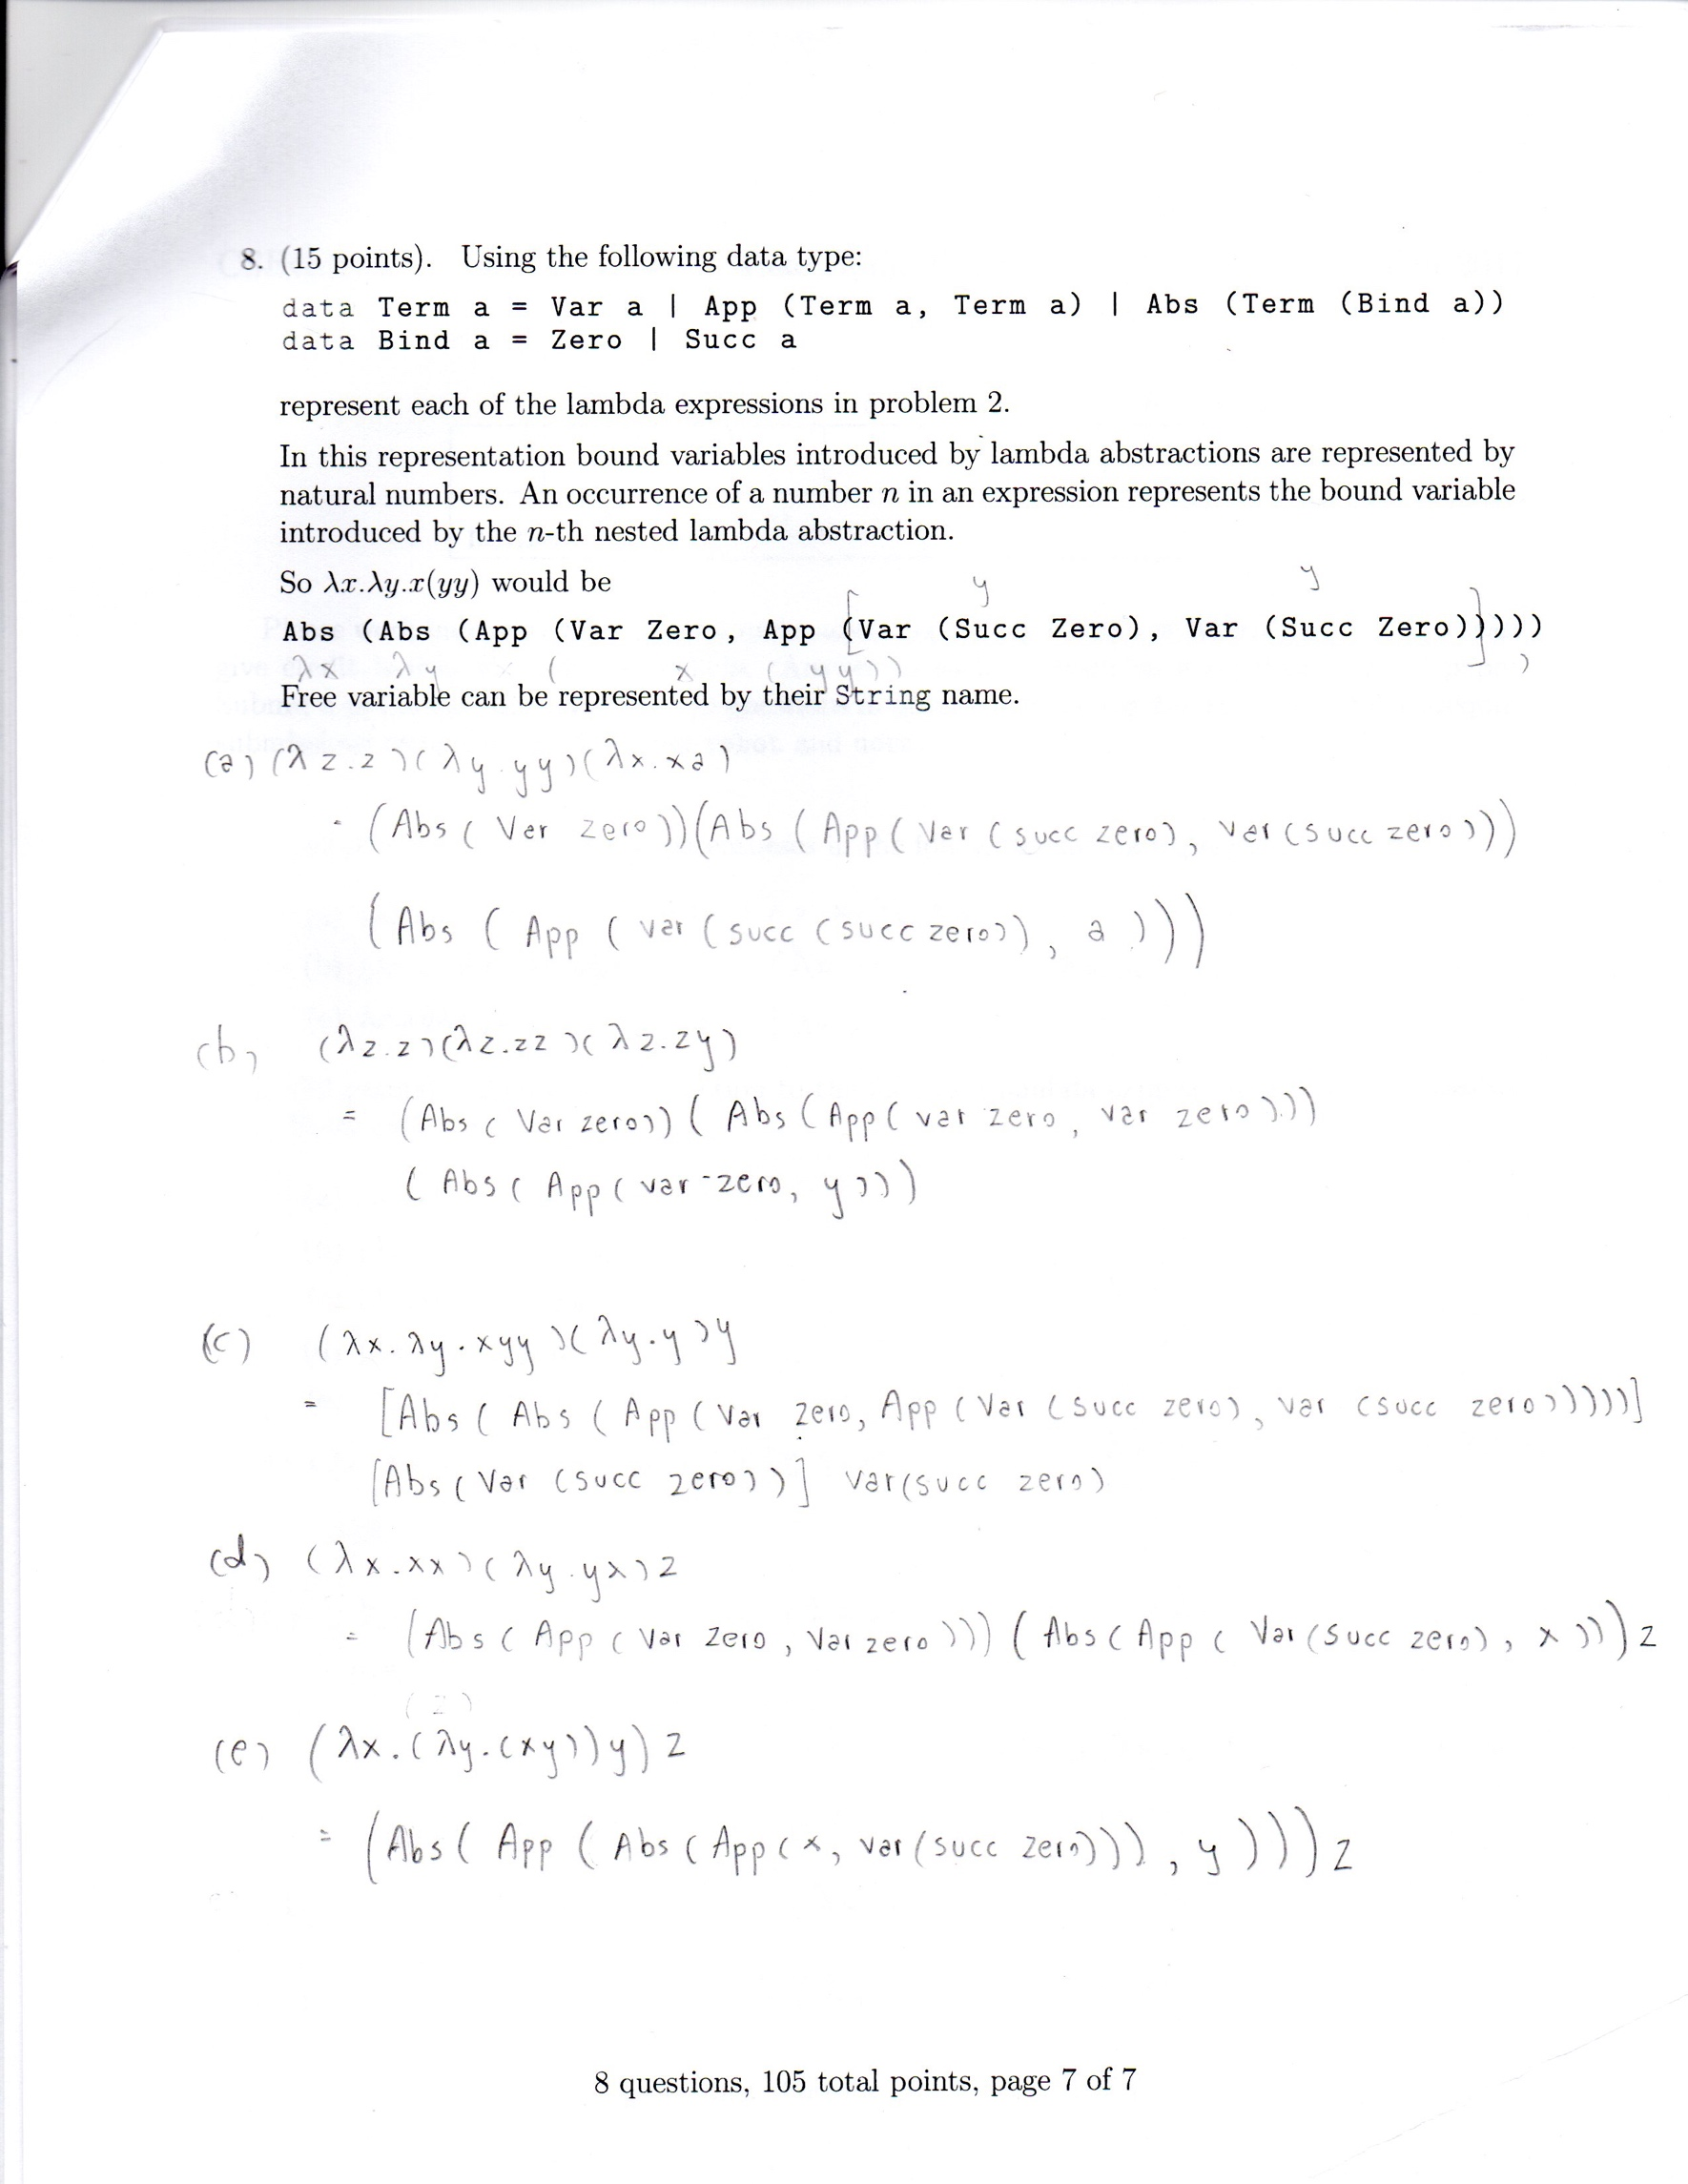 8. (15 points). Using the following data type:
data Term a = Var a | App (Term a, Term a) | Abs (Term (Bind a))
data Bind a = Zero | Succ a
represent each of the lambda expressions in problem 2.
In this representation bound variables introduced by lambda abstractions are represented by
natural numbers. An occurrence of a number n in an expression represents the bound variable
introduced by the n-th nested lambda abstraction.
So λx.λy.x(yy) would be
y y
Abs (Abs (App (Var Zero, App (Var (Succ Zero), Var (Succ Zero)))))
λx λy ( x (yy))
Free variable can be represented by their String name.
(a) (λz.z)(λy.yy)(λx.xa)
= (Abs (Var zero))(Abs (App (Var (succ zero), Var (succ zero))))
(Abs (App (var (succ (succ zero)), a)))
(b) (λz.z)(λz.zz)(λz.zy)
= (Abs (Var zero)) (Abs (App (var zero, var zero)))
(Abs (App (var zero, y)))
(c) (λx.λy.xyy)(λy.y)y
= [Abs (Abs (App (Var zero, App (Var (succ zero), var (succ zero)))))]
[Abs (Var (succ zero))] var(succ zero)
(d) (λx.xx)(λy.yx)z
= (Abs (App (Var zero, Var zero))) (Abs (App (Var (succ zero), x))) z
(e) (λx.(λy.(xy))y) z
= (Abs (App (Abs (App (x, var (succ zero))), y))) z
8 questions, 105 total points, page 7 of 7